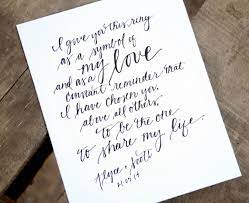 I give you this ring
as a symbol of
my love
and as a
constant reminder that
I have chosen you
above all others,
to be the one
to share my life.